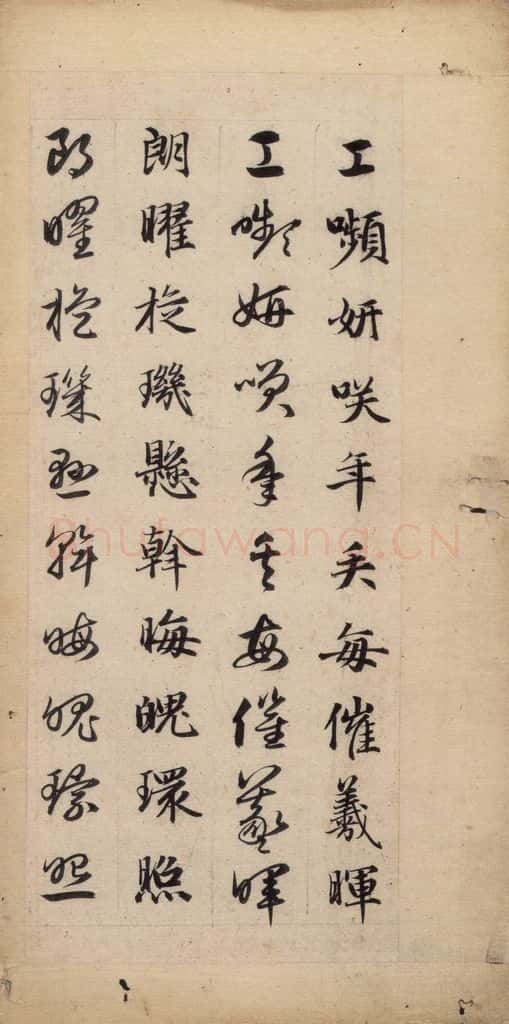 工嚬妍咲年矢每催羲暉
工嚬妍咲年矢每催羲暉
朗曜旋璣懸斡晦魄環照
朗曜旋璣懸斡晦魄環照
Shufawang.CN